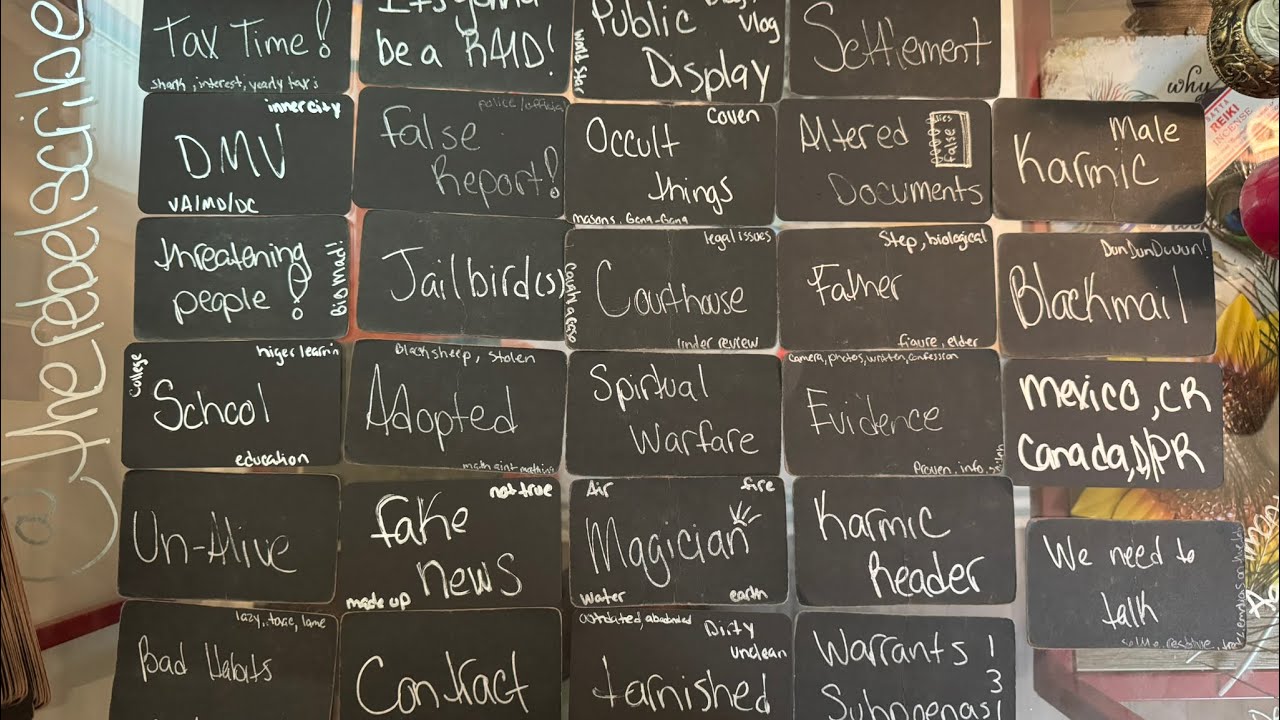 @therebelscribe
Tax Time!
shark, interest, yearly taxes
It's gonna
be a RAID!
Public
vlog
Display
World Star
Settlement
why
REIKI
INCENSE
inner city
DMV
VA/MD/DC
police/official
False
Report!
Coven
Occult
things
masons, Gang-Gang
Altered
false
Documents
Male
Karmic
threatening
people!
Big Mad!!
Jailbird(s)
legal issues
Courthouse
under review
Caught a case
Step, biological
Father
figure, elder
Dun Dun Duuun!
Blackmail
College
higer learnin
School
education
Black sheep, stolen
Adopted
math aint mathing
Spirtual
Warfare
camera, photos, written, confession
Evidence
Proven, info,
Mexico, CR
Canada, D/PR
Un-Alive
not true
fake
news
made up
Air
fire
Magician
water
earth
Karmic
Reader
We need to
talk
lazy, toxic, lame
Bad Habits
Contract
outdated, abandoned
Dirty
unclean
tarnished
Warrants 1
3
Subpoenas 1